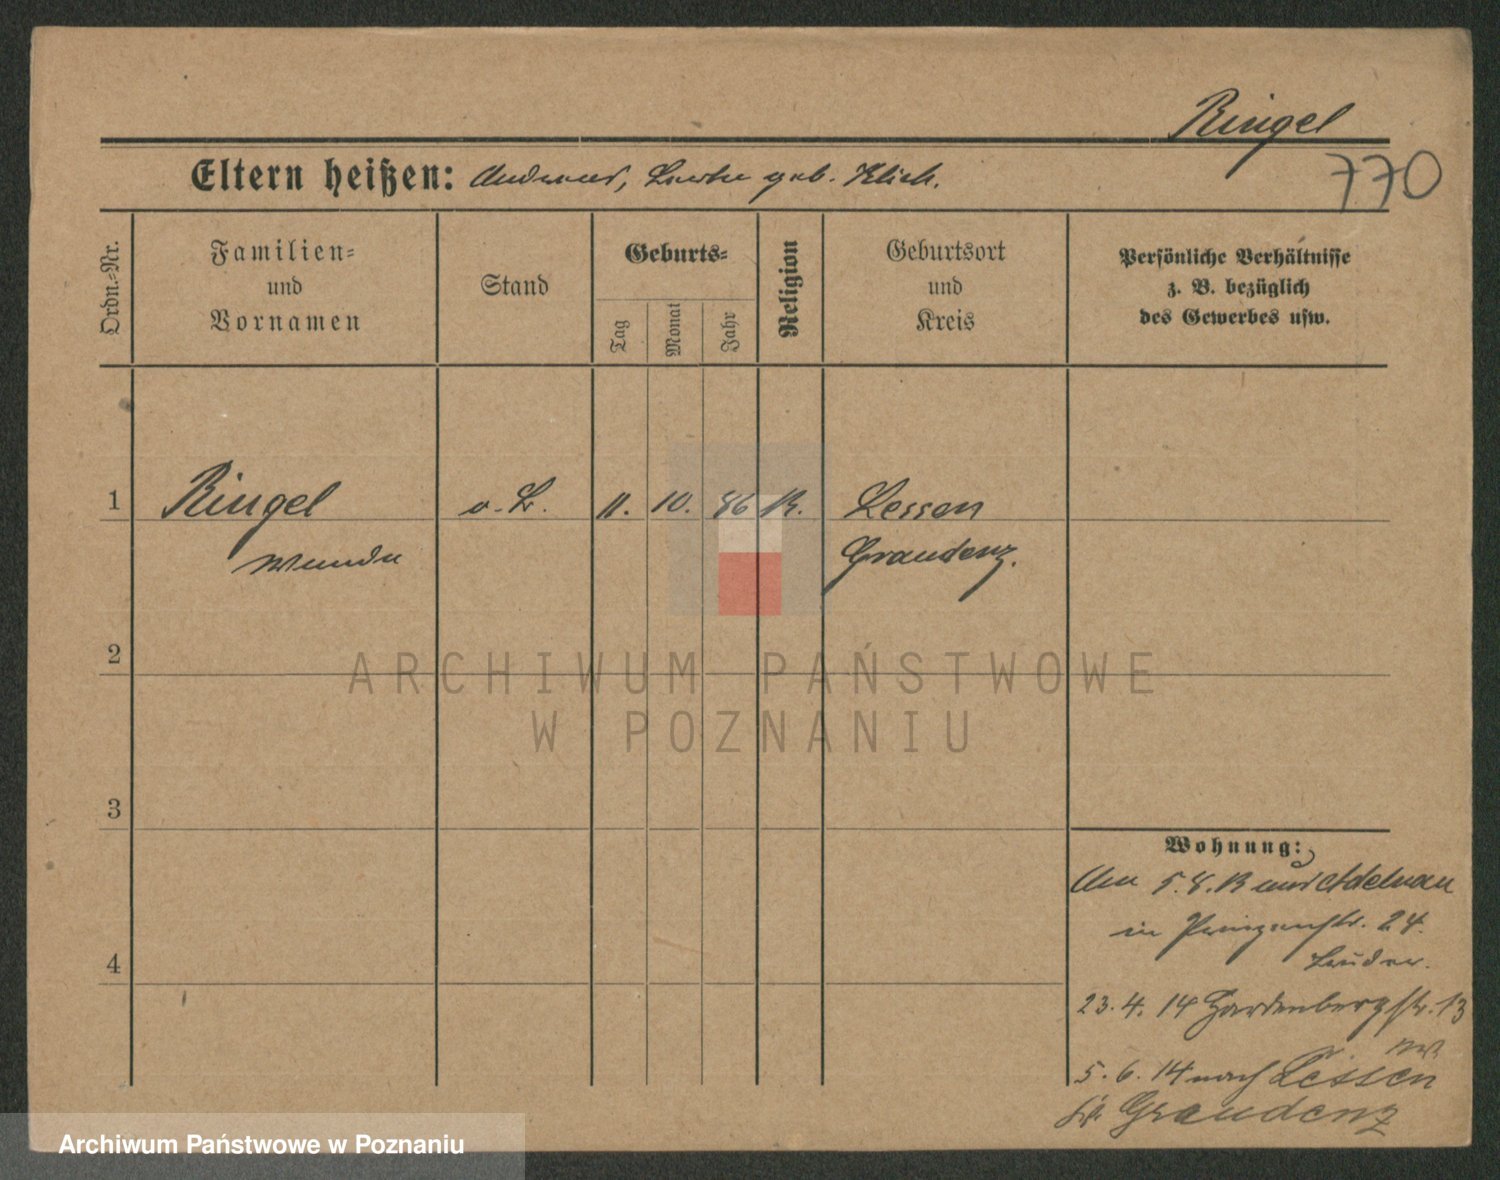 Ringel
770
Eltern heißen: Andreas, geb. Klich.
Ordn.-Nr.
Familien-
und
Vornamen
Stand
Geburts-
Tag
Monat
Jahr
Religion
Geburtsort
und
Kreis
Persönliche Verhältnisse
z. B. bezüglich
des Gewerbes usw.
1
Ringel
o. L.
11.
10.
86
K.
Lessen
Wanda
Graudenz.
2
3
4
Wohnung:
5. 8. 13 Adelnau
in Prinzenstr. 24.
23. 4. 14 Hardenbergstr. 13
5. 6. 14 nach Lessen
Kr. Graudenz
ARCHIWUM PAŃSTWOWE
W POZNANIU
Archiwum Państwowe w Poznaniu